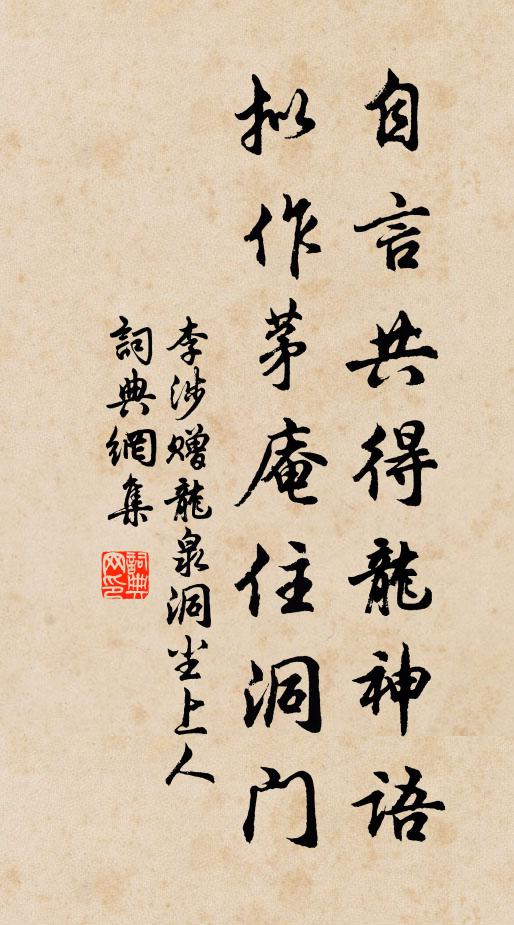 自言共得龍神语
拟作茅庵住洞门
李涉赠龍泉洞尘上人
詞典網集
詞典网印